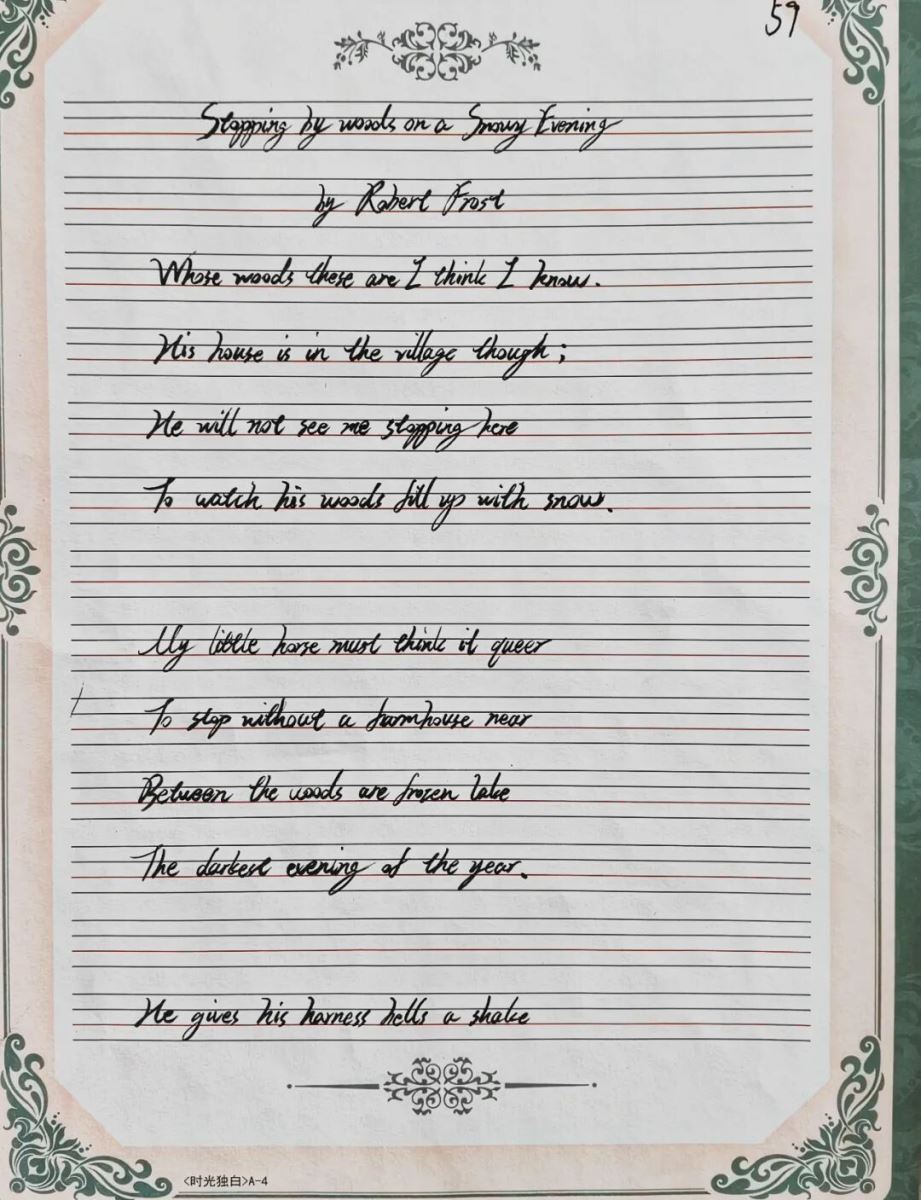 59
Stopping by woods on a Snowy Evening
by Robert Frost
Whose woods these are I think I know.
His house is in the village though;
He will not see me stopping here
To watch his woods fill up with snow.
My little horse must think it queer
To stop without a farmhouse near
Between the woods are frozen lake
The darkest evening of the year.
He gives his harness bells a shake
<时光独白>A-4